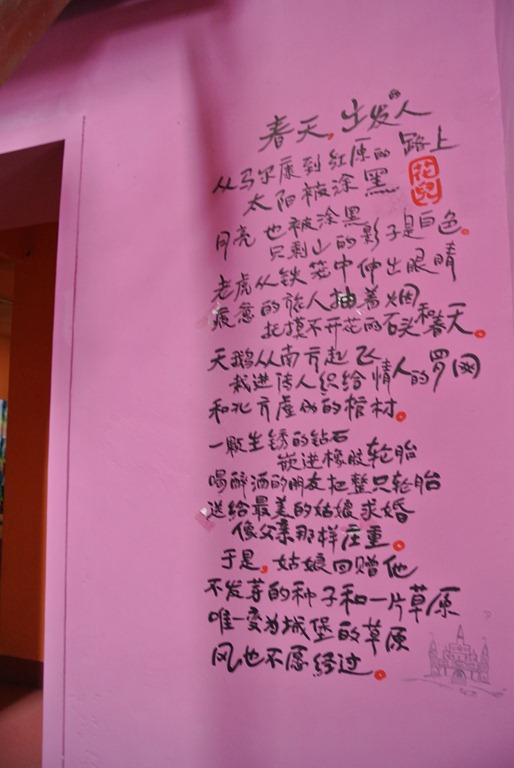 春天,出发的人
从马尔康到红原的路上
花儿
太阳被涂黑
月亮也被涂黑
只剩山的影子是白色。
老虎从铁笼中伸出眼睛
疲惫的旅人抽着烟
抚摸不开花的石头和春天。
天鹅从南方起飞
栽进诗人织给情人的罗网
和北方虚伪的棺材。
一颗生锈的钻石
嵌进橡胶轮胎
喝醉酒的朋友把整只轮胎
送给最美的姑娘求婚
像父亲那样庄重。
于是,姑娘回赠他
不发芽的种子和一片草原
唯一变为城堡的草原
风也不愿经过。